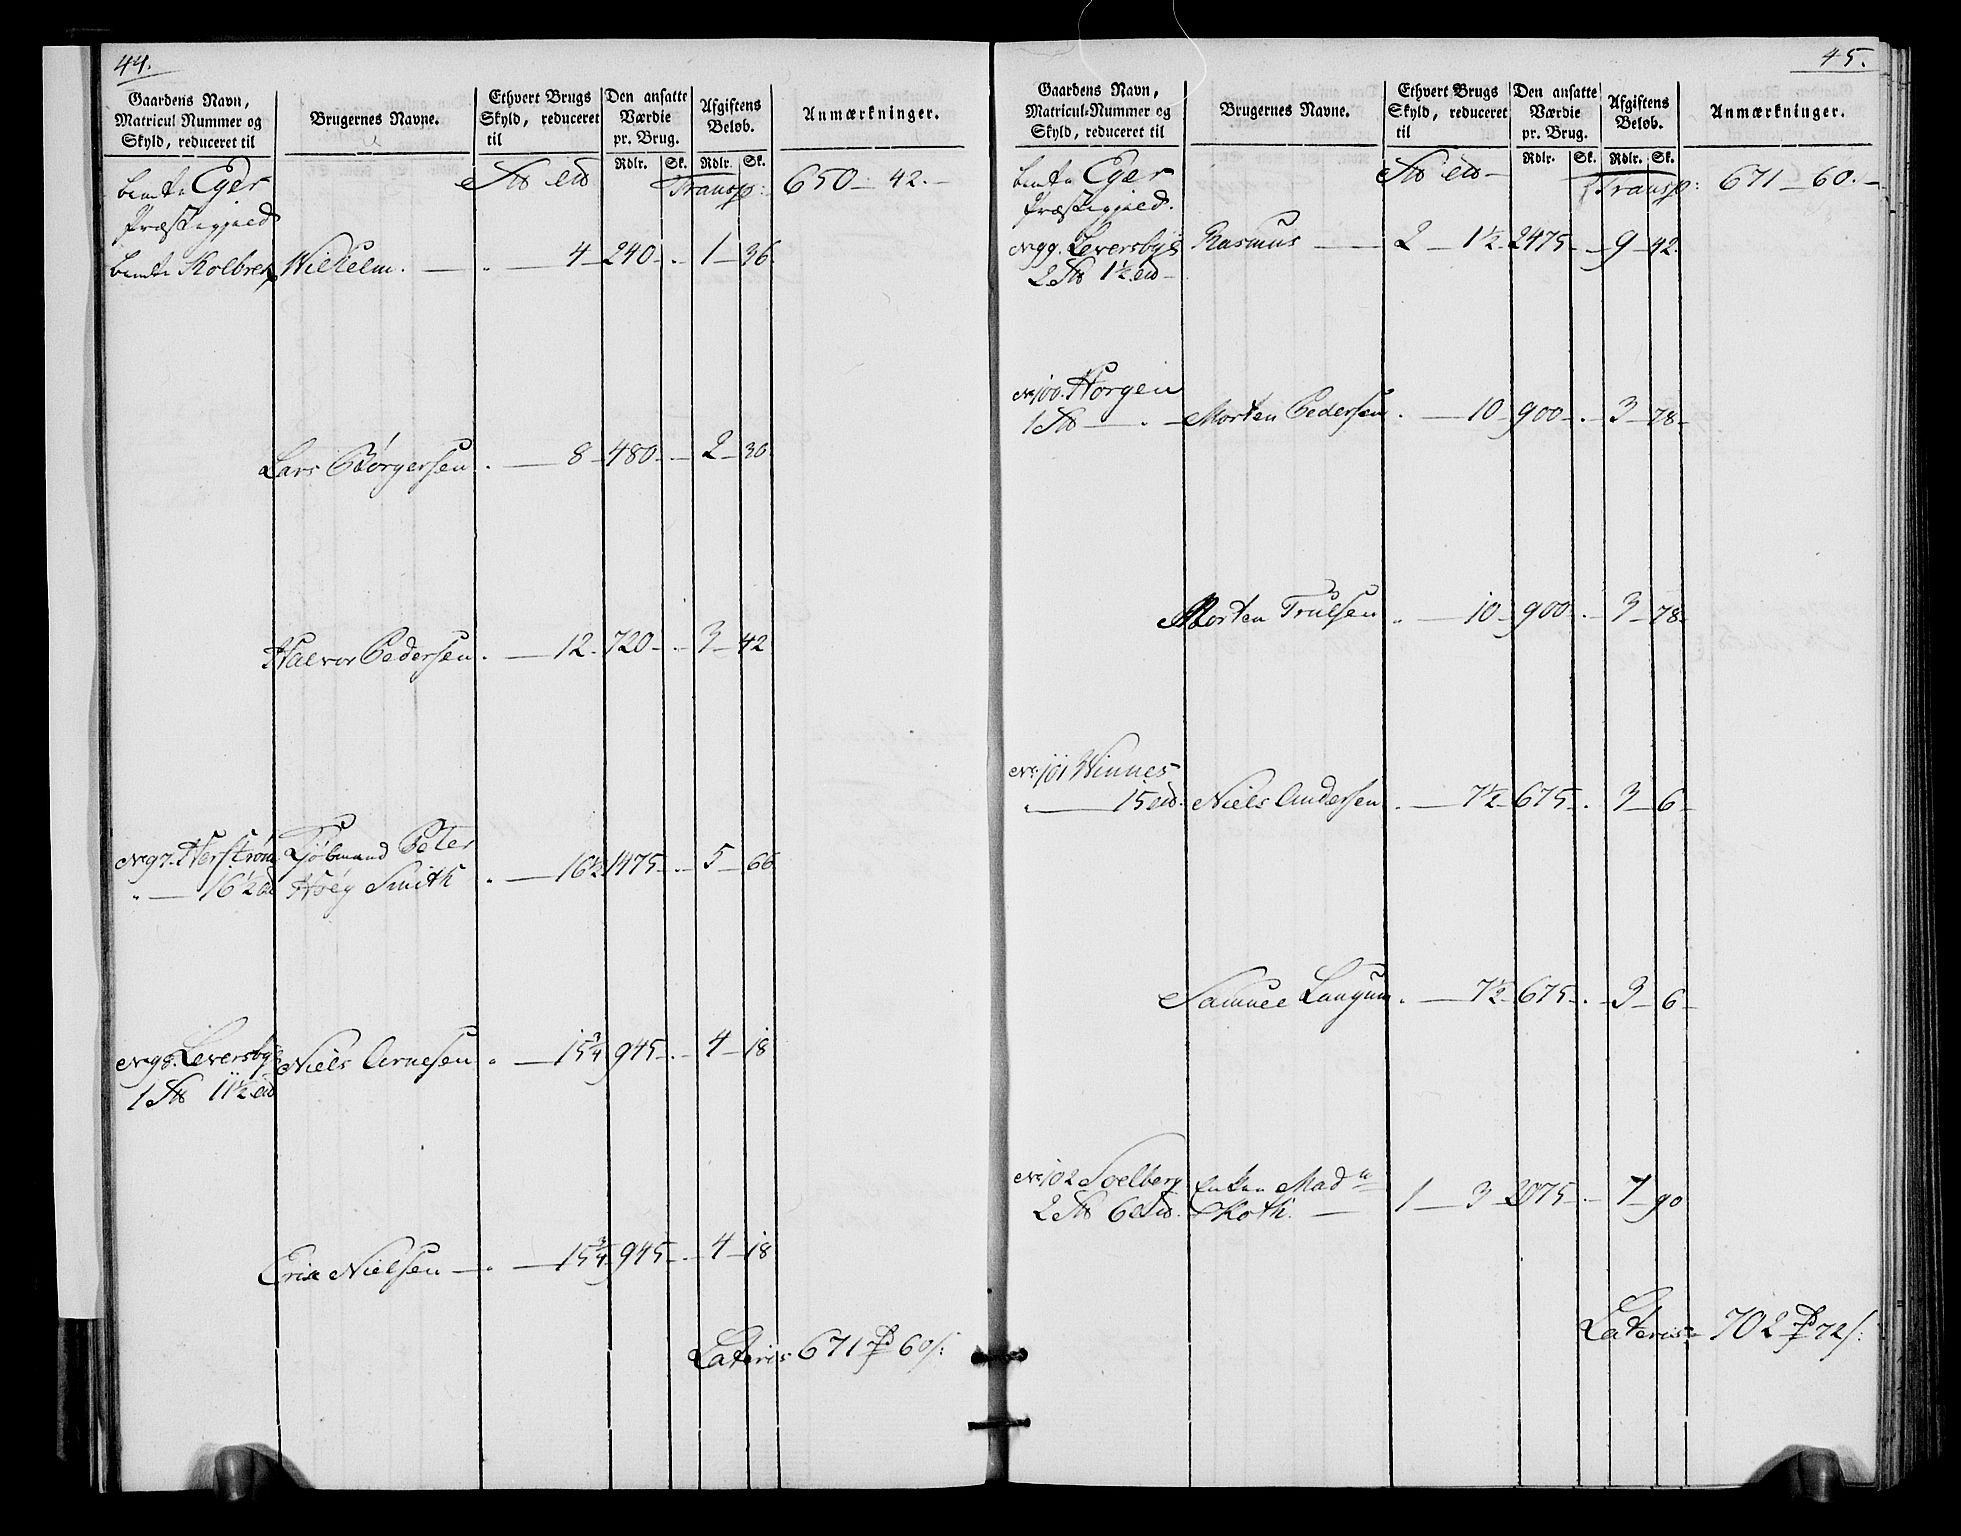 44.
Gaardens Navn, Matricul Nummer og Skyld, reduceret til
Brugernes Navne.
Ethvert Brugs Skyld, reduceret til
Den ansatte Værdie pr. Brug.
Afgiftens Beløb.
Anmærkninger.
Rdlr. Sk. Rdlr. Sk.
bemte Eger Transp: 650 - 42. -
Præstegjeld
bemte Kolbre Wilhelm. 4 - 240 - 1 - 36.
Lars Børgersen 8 - 480 - 2 - 30
Halvor Pedersen 12 - 720 - 3 - 42
No 97. Herstrøm Kjøbmand Peter
16½ Høeg Smith 16½ 1475 - 5 - 66
No 98. Leversbye Niels Arnesen 15¾ 945 - 4 - 18
1 11½
Eric Nielsen 15¾ 945 - 4 - 18
Lateris 671 60
45.
Gaardens Navn, Matricul-Nummer og Skyld, reduceret til
Brugernes Navne.
Ethvert Brugs Skyld, reduceret til
Den ansatte Værdie pr. Brug.
Afgiftens Beløb.
Anmærkninger.
Rdlr. Sk. Rdlr. Sk.
bemte Eger Transp: 671 - 60. -
Præstegjeld.
No 99. Leversbye Rasmus 2 - 1½ 2475 - 9 - 42
2 1½
No 100. Horgen
1 Morten Pedersen 10 900 - 3 - 78 -
Morten Truelsen 10 900 - 3 - 78 -
No 101 Winnes
15 Niels Andersen 7½ 675 - 3 - 6 -
Samuel Langum 7½ 675 - 3 - 6 -
No 102 Soelberg Enken Mad
2 6 Koth. 1 - 3 - 2075 - 7 - 90
Lateris 702 72